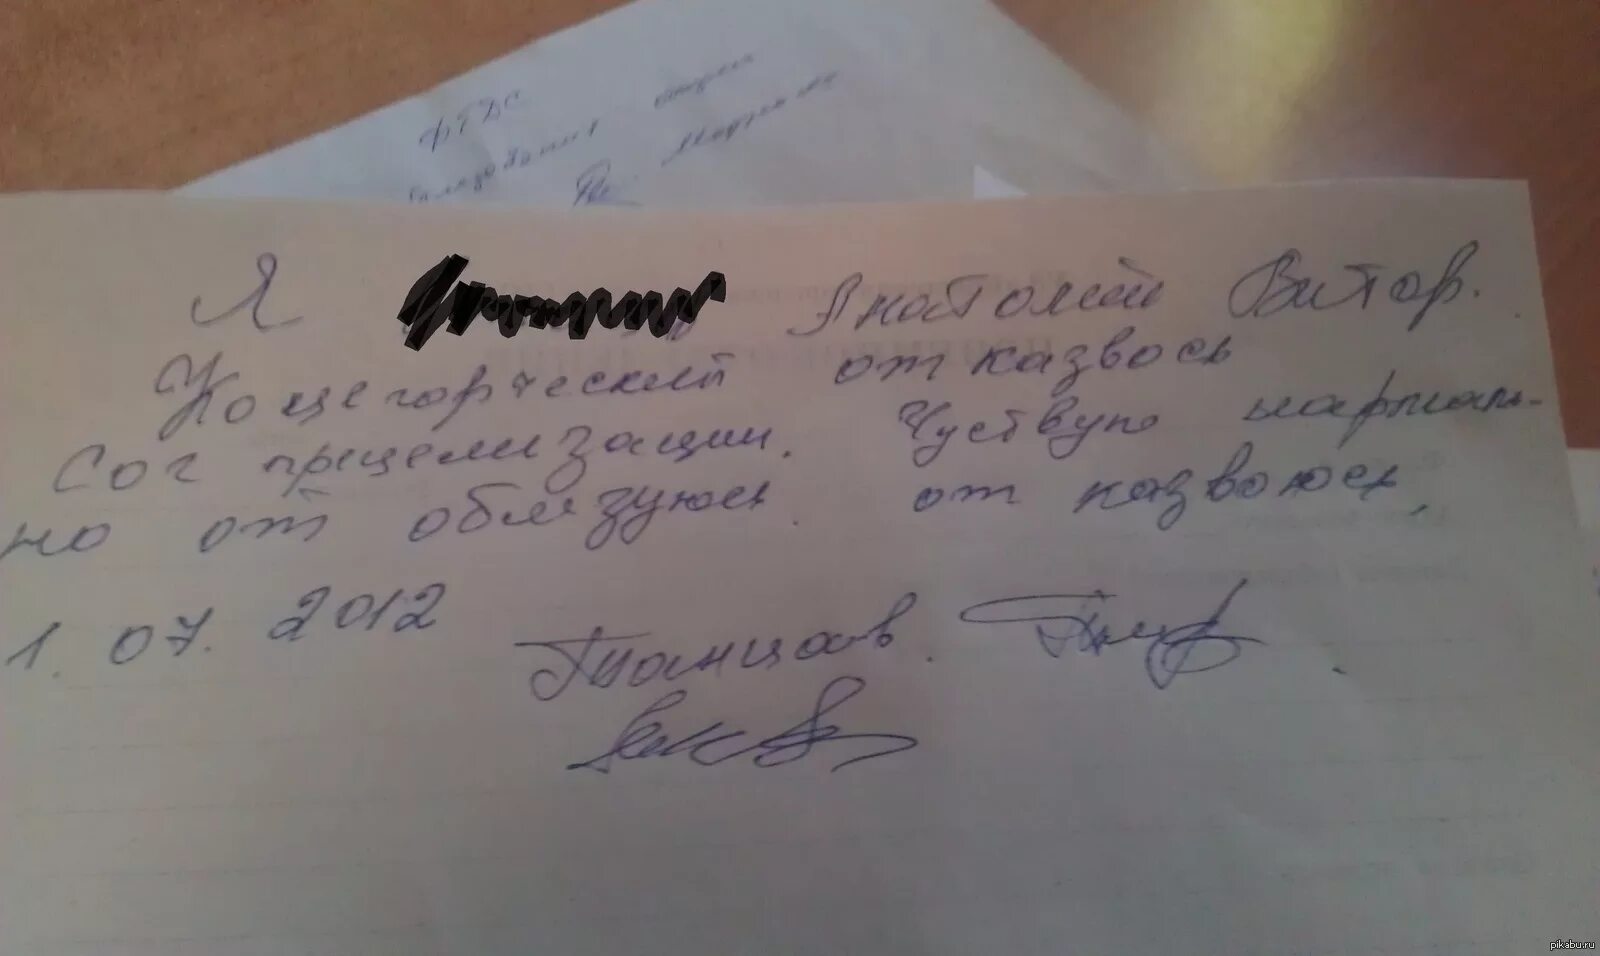 ФГДС
Я Анатолий Витор.
Кощегорческий от казвось
Сог прецелизации. Чуствую нармаль-
но от облезуюсь. от казвоюсь,
1. 07. 2012
pikabu.ru